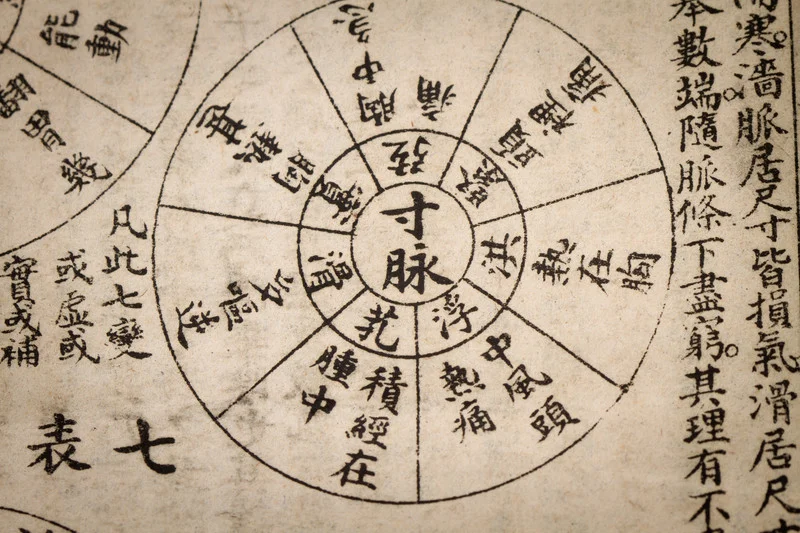 寒濇脉居尺寸皆損氣滑居尺
舉數端隨脉條下盡窮其理有不
寸脉
浮
中風頭
熱痛
芤
積經在
腫中
滑
嘔逆
實
胸
熱
弦
胸中急
痛
緊
頭
痛
洪
熱在胸
凡此七變
或虛或
實或補
七表
能動
翻胃
幾